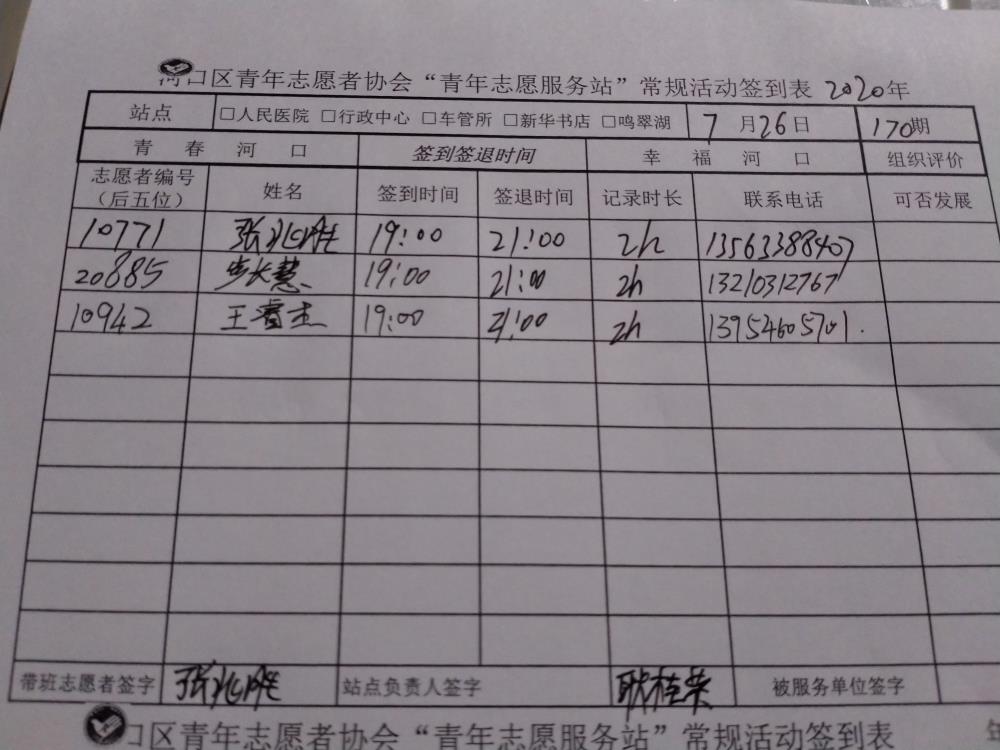 河口区青年志愿者协会“青年志愿服务站”常规活动签到表 2020年
站点 □人民医院 □行政中心 □车管所 □新华书店 □鸣翠湖 7月26日 170期
青春河口 签到签退时间 幸福河口 组织评价
志愿者编号（后五位） 姓名 签到时间 签退时间 记录时长 联系电话 可否发展
10771 张兆胜 19:00 21:00 2h 13563388407
20885 步长慧 19:00 21:00 2h 13210312767
10942 王睿杰 19:00 21:00 2h 13954605701.
带班志愿者签字 张兆胜 站点负责人签字 耿桂荣 被服务单位签字
口区青年志愿者协会“青年志愿服务站”常规活动签到表